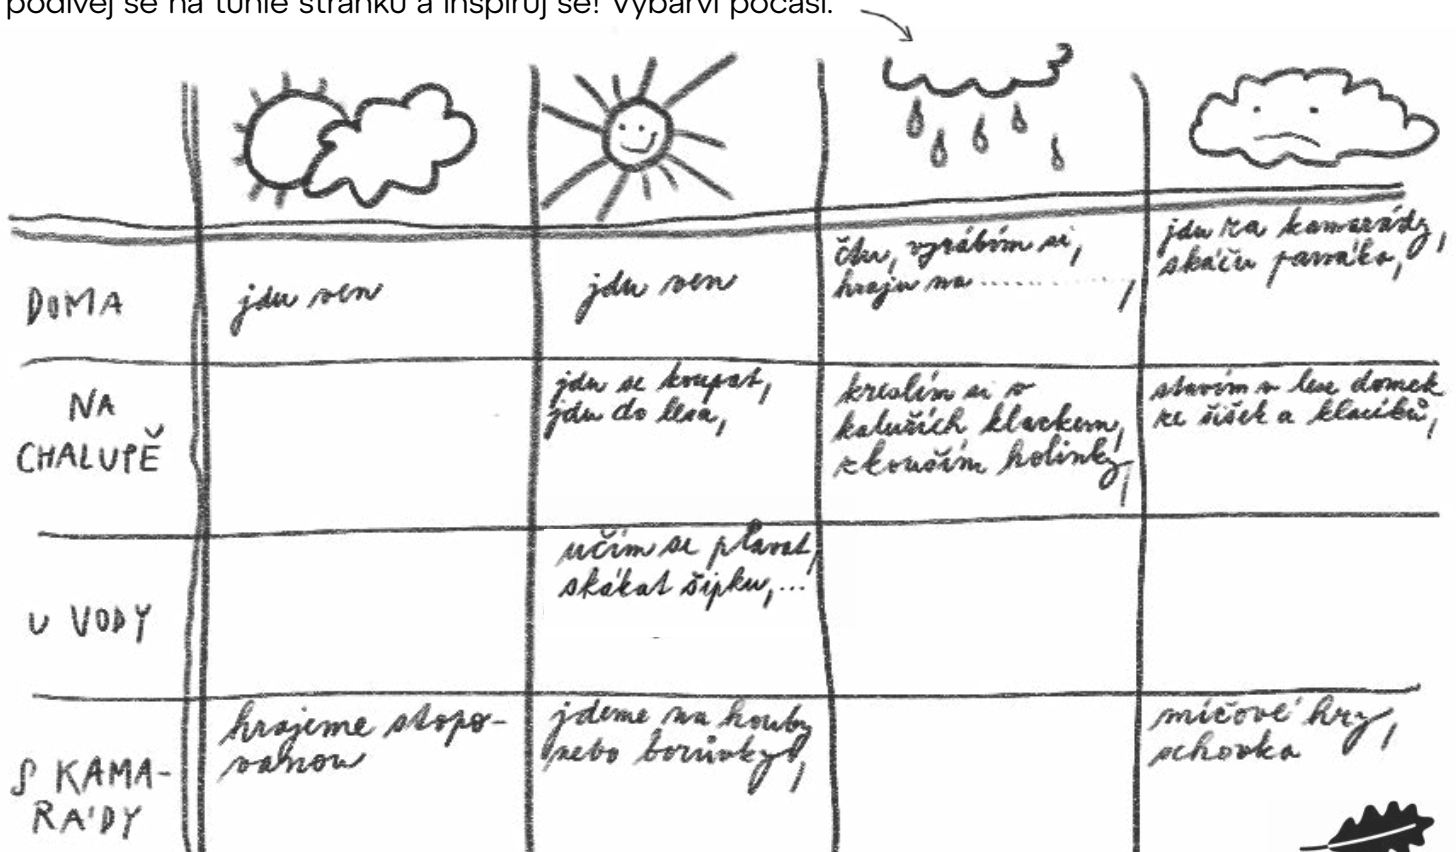 podívej se na tuhle stránku a inspiruj se! Vybarvi počasí.
DOMA
jdu ven
jdu ven
čtu, vyrábím si,
hraju na ............,
jdu za kamarády,
skáču panáka,
NA
CHALUPĚ
jdu se koupat,
jdu do lesa,
kreslím si v
kalužích klackem,
zkouším holinky,
stavím v lese domek
ze šišek a klacíků,
U VODY
učím se plavat,
skákat šipku,...
S KAMA-
RÁDY
hrajeme stopo-
vanou
jdeme na houby
nebo borůvky,
míčové hry,
schovka